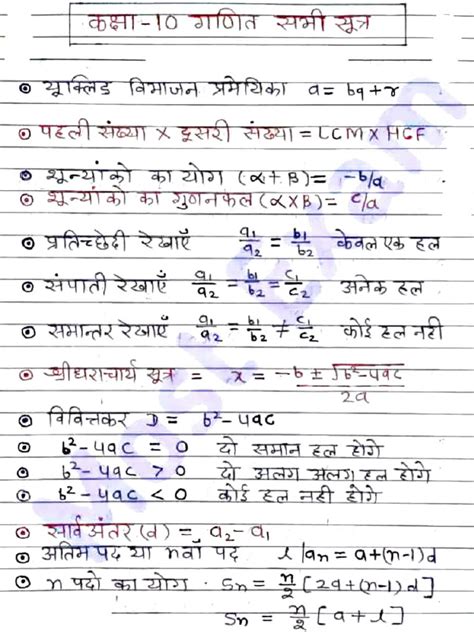 कक्षा-10 गणित सभी सूत्र
यूक्लिड विभाजन प्रमेयिका a = bq + r
पहली संख्या × दूसरी संख्या = LCM × HCF
शून्यांको का योग (α + β) = -b/a
शून्यांको का गुणनफल (α × β) = c/a
प्रतिच्छेदी रेखाएँ a₁/a₂ = b₁/b₂ केवल एक हल
संपाती रेखाएँ a₁/a₂ = b₁/b₂ = c₁/c₂ अनेक हल
समान्तर रेखाएँ a₁/a₂ = b₁/b₂ ≠ c₁/c₂ कोई हल नही
श्रीधराचार्य सूत्र = x = -b ± √b²-4ac / 2a
विवित्तकर D = b²-4ac
b²-4ac = 0 दो समान हल होगे
b²-4ac > 0 दो अलग अलग हल होगे
b²-4ac < 0 कोई हल नही होगे
सार्व अंतर (d) = a₂ - a₁
अंतिम पद या nवाँ पद l/an = a+(n-1)d
n पदो का योग . Sn = n/2 [2a+(n-1)d]
Sn = n/2 [a + l]
Most Exam